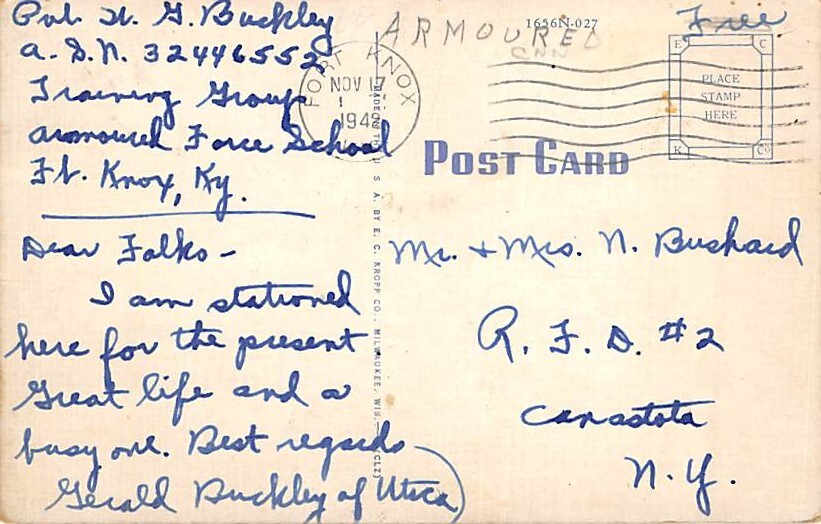 Pvt. H. G. Buckley
A.S.N. 32446552
Training Group
Armoured Force School
Ft. Knox, Ky.
Dear Folks -
I am stationed
here for the present
Great life and a
busy one. Best regards
Gerald Buckley of Utica
ARMOURED
1656N-027
Free
FORT KNOX
NOV 17
1942
PLACE
STAMP
HERE
E C
K Co
POST CARD
MADE IN THE U. S. A. BY E. C. KROPP CO., MILWAUKEE, WIS.
CLZ)
Mr. + Mrs. N. Bushard
R. F. D. #2
Canastota
N. Y.